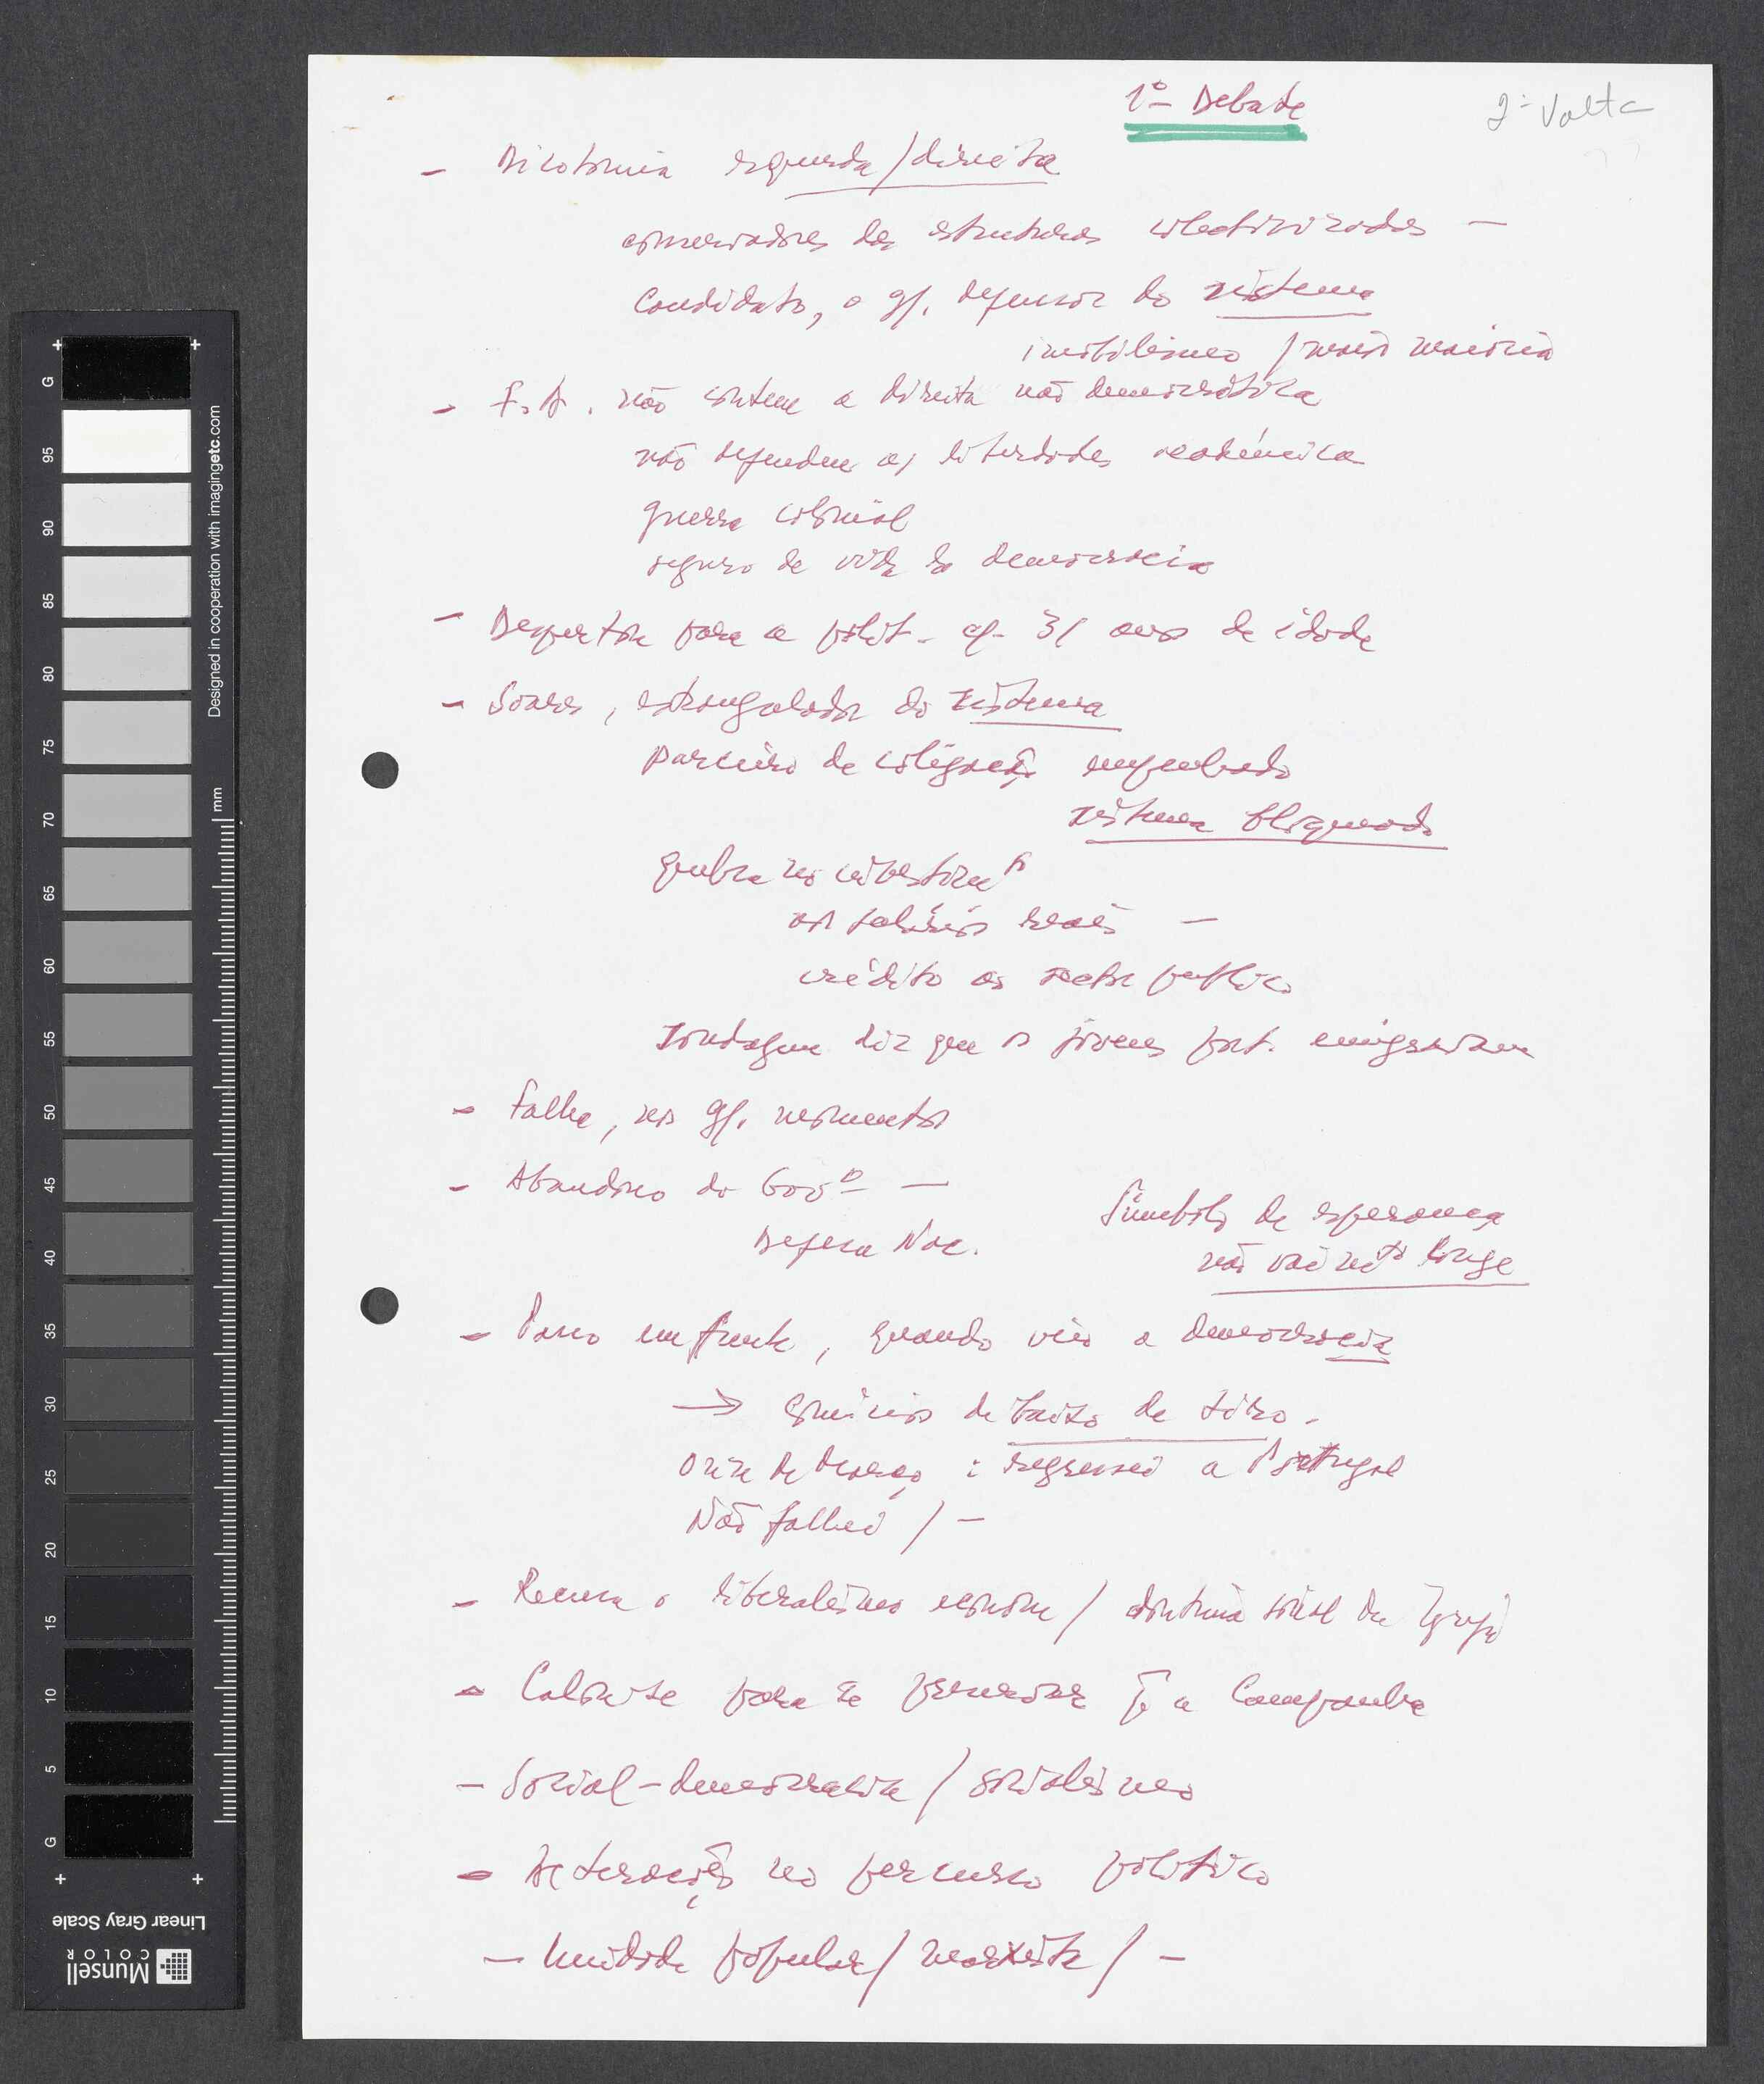 1º Debate
2ª Volta
- Dicotomia esquerda/direita
conservadores das estruturas colectivizadas -
Candidato, o gr. defensor do sistema
imobilismo / maioria
- F.A. não conteve a direita não democrática
não defendeu as liberdades académica
guerra colonial
seguro de vida da democracia
- Despertou para a polit. c/ 31 anos de idade
- Soares, estrangulador do sistema
parceiro de coligação
sistema bloqueado
quebra no investimto
os salários reais -
crédito ao sector publico
Sondagem diz que os jovens port. emigrariam
- Falha, nos gr. momentos
- Abandono do Govº -
Defesa Nac.
Símbolo de esperança
não vai mto longe
- Passo em frente, quando veio a democracia
→ comícios debaixo de tiro.
Onze de Março : regressei a Portugal
Não falhei / -
- Recusa o liberalismo econom / doutrina social da Igreja
- Calou-se para se a Campanha
- Social-democracia / socialismo
- Alterações no percurso político
- Unidade popular / marxista / -
G
95
90
85
80
75
70
65
60
55
50
45
40
35
30
25
20
15
10
5
G
mm
Designed in cooperation with imagingetc.com
Linear Gray Scale
Munsell
COLOR